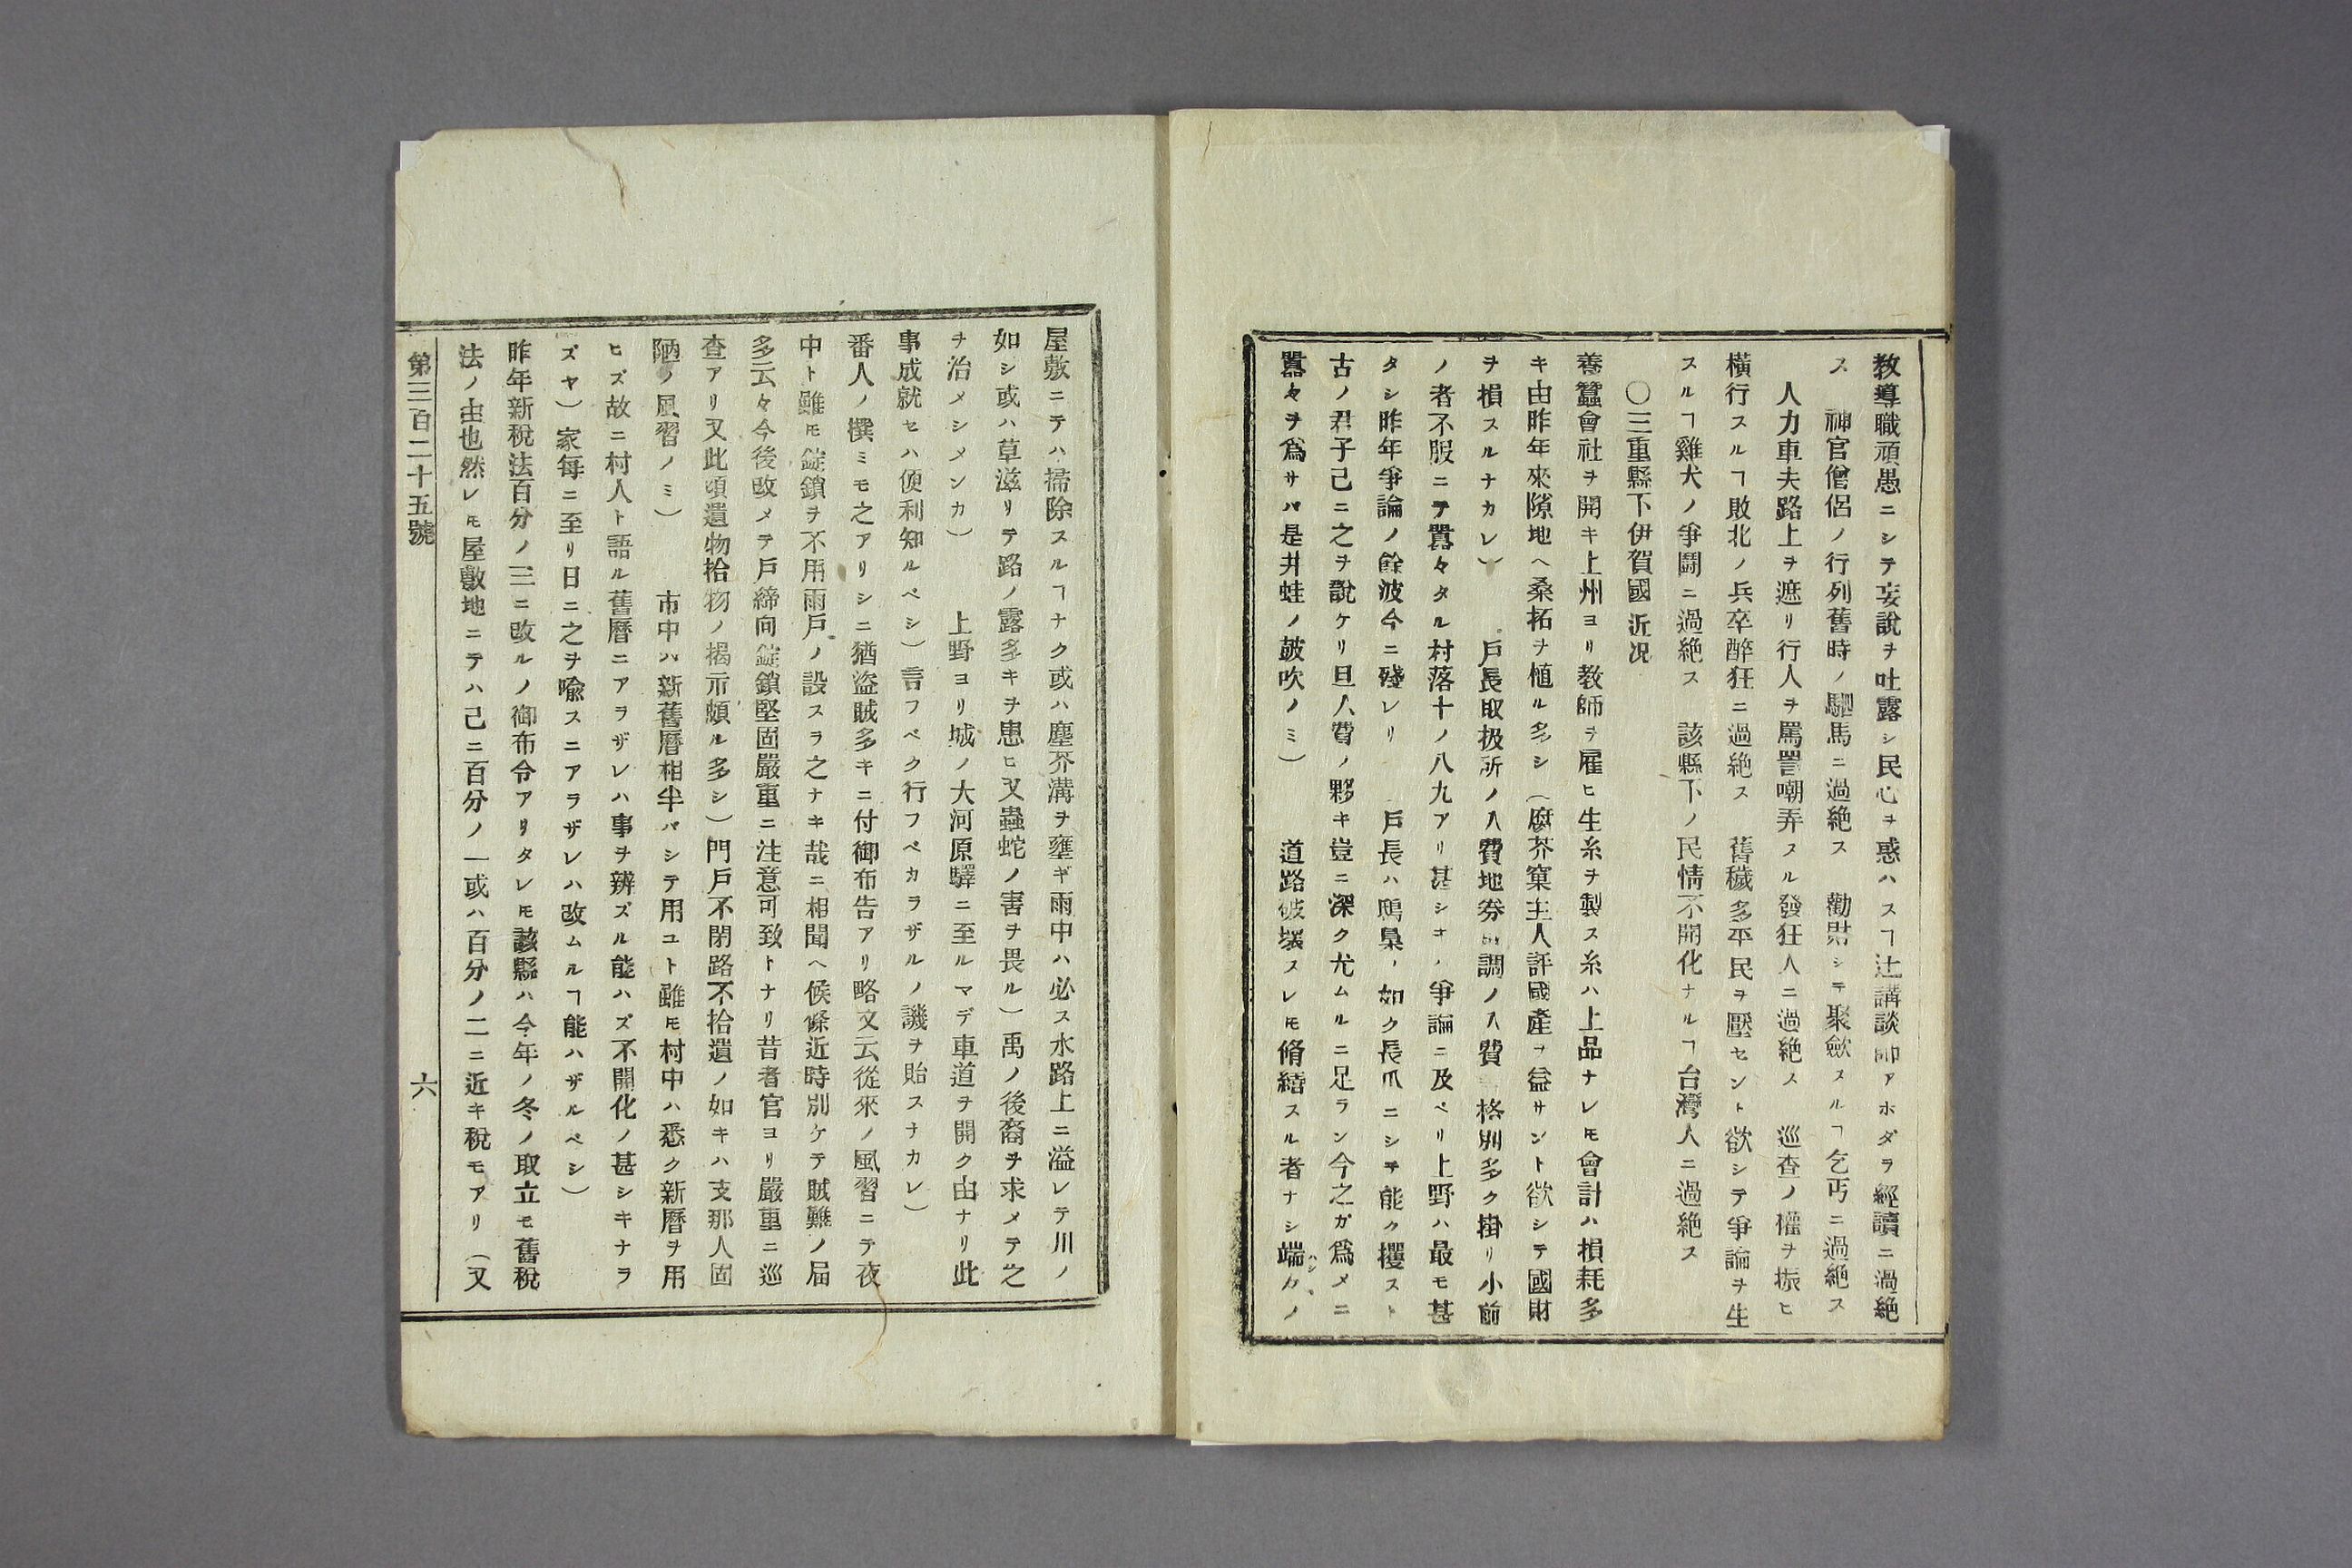 教導職頑愚ニシテ妄說ヲ吐露シ民心ヲ惑ハスヿ辻講談師アホダラ經讀ニ過絶
ス　神官僧侶ノ行列舊時ノ騶馬ニ過絶ス　勸財シテ聚斂スルヿ乞丐ニ過絶ス
人力車夫路上ヲ遮リ行人ヲ罵詈嘲弄スル發狂人ニ過絶ス　巡査ノ權ヲ振ヒ
橫行スルヿ敗北ノ兵卒醉狂ニ過絶ス　舊穢多平民ヲ壓セント欲シテ爭論ヲ生
スルヿ雞犬ノ爭鬪ニ過絶ス　該縣下ノ民情不開化ナルヿ台灣人ニ過絶ス
〇三重縣下伊賀國近况
養蠶會社ヲ開キ上州ヨリ敎師ヲ雇ヒ生糸ヲ製ス糸ハ上品ナレ𪜈會計ハ損耗多
キ由昨年來隙地ヘ桑拓ヲ植ル多シ（腐芥窠主人評國產ヲ益サント欲シテ國財
ヲ損スルナカレ）　戶長取扱所ノ入費地券調ノ入費格別多ク掛リ小前
ノ者不服ニテ囂々タル村落十ノ八九アリ甚シキハ爭論ニ及ベリ上野ハ最モ甚
タシ昨年爭論ノ餘波今ニ殘レリ　戶長ハ鴟梟ノ如ク長爪ニシテ能ク攫スト
古ノ君子己ニ之ヲ說ケリ且人費ノ夥キ豈ニ深ク尤ムルニ足ラン今之ガ爲メニ
囂々ヲ爲サバ是井蛙ノ皷吹ノミ）　道路破壞スレ𪜈脩繕スル者ナシ端カノ
屋敷ニテハ掃除スルヿナク或ハ塵芥溝ヲ壅ギ雨中ハ必ス水路上ニ溢レテ川ノ
如シ或ハ草滋リテ路ノ露多キヲ患ヒ又蟲蛇ノ害ヲ畏ル）禹ノ後裔ヲ求メテ之
ヲ治メシメンカ）　上野ヨリ城ノ大河原驛ニ至ルマデ車道ヲ開ク由ナリ此
事成就セハ便利知ルベシ）言フベク行フベカラザルノ譏ヲ貽スナカレ）
番人ノ撰ミモ之アリシニ猶盜賊多キニ付御布告アリ略文云從來ノ風習ニテ夜
中ト雖𪜈錠鎖ヲ不用雨戶ノ設スラ之ナキ哉ニ相聞ヘ候條近時別ケテ賊難ノ届
多云々今後改メテ戶締向錠鎖堅固嚴重ニ注意可致トナリ昔者官ヨリ嚴重ニ巡
查アリ又此頃遺物拾物ノ揭示頗ル多シ）門戶不閉路不拾遺ノ如キハ支那人固
陋ノ風習ノミ）　市中ハ新舊曆相半バシテ用ユト雖𪜈村中ハ悉ク新曆ヲ用
ヒズ故ニ村人ト語ル舊曆ニアラザレハ事ヲ辨ズル能ハズ不開化ノ甚シキナラ
ズヤ）家每ニ至リ日ニ之ヲ喩スニアラザレハ改ムルヿ能ハザルベシ）
昨年新稅法百分ノ三ニ改ルノ御布令アリタレ𪜈該縣ハ今年ノ冬ノ取立モ舊稅
法ノ由也然レ𪜈屋敷地ニテハ己ニ百分ノ一或ハ百分ノ二ニ近キ稅モアリ（又
第三百二十五號　六